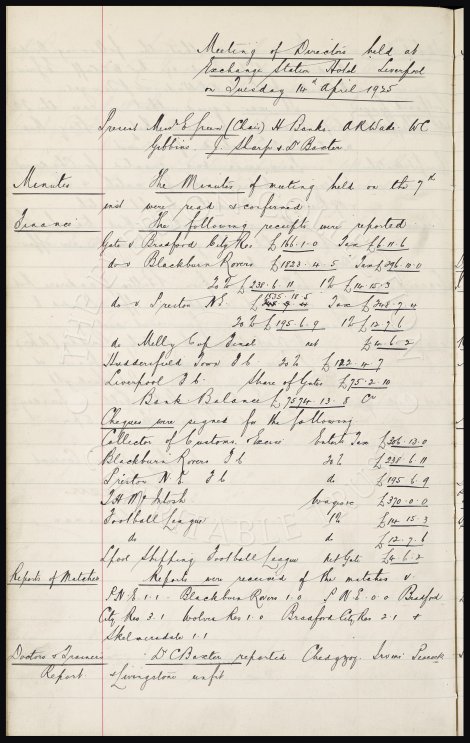 Meeting of Directors held at
Exchange Station Hotel Liverpool
on Tuesday 14th April 1925
Present Messrs E Green (Chair) H Banks. A R Wade. W C
Gibbins. J. Sharp & Dr Baxter
Minutes The Minutes of meeting held on the 7th
inst were read & confirmed.
Finance The following receipts were reported.
Gate v Bradford City Res £166.1.0 Tax £6.11.6
do v Blackburn Rovers £1823.4.5 Tax £296.11.0
20% £238.6.11 1% £14.15.3
do v Preston N.E. £1525.18.5 Tax £248.7.4
20% £195.6.9 1% £12.7.6
do Melly Cup Final net £4.6.2
Huddersfield Town F C 20% £122.4.7
Liverpool F C. Share of Gates £75.2.10
Bank Balance £7574.13.8 Cr
Cheques were signed for the following
Collector of Customs & Excise Enterts Tax £306.13.0
Blackburn Rovers F C 20% £238.6.11
Preston N.E. F C do £195.6.9
T H McIntosh Wages £370.0.0
Football League 1% £14.15.3
do do £12.7.6
Lpool Shipping Football League net Gate £4.6.2
Reports of Matches Reports were received of the matches v.
P.N.E 1.1 - Blackburn Rovers 1.0 P.N.E. 0.0 Bradford
City Res 3.1 Wolves Res 1.0 Bradford City Res 2.1 &
Skelmersdale 1.1
Doctors & Trainers Dr C Baxter reported Chedgzoy. Irvine Peacock
Report. & Livingstone unfit